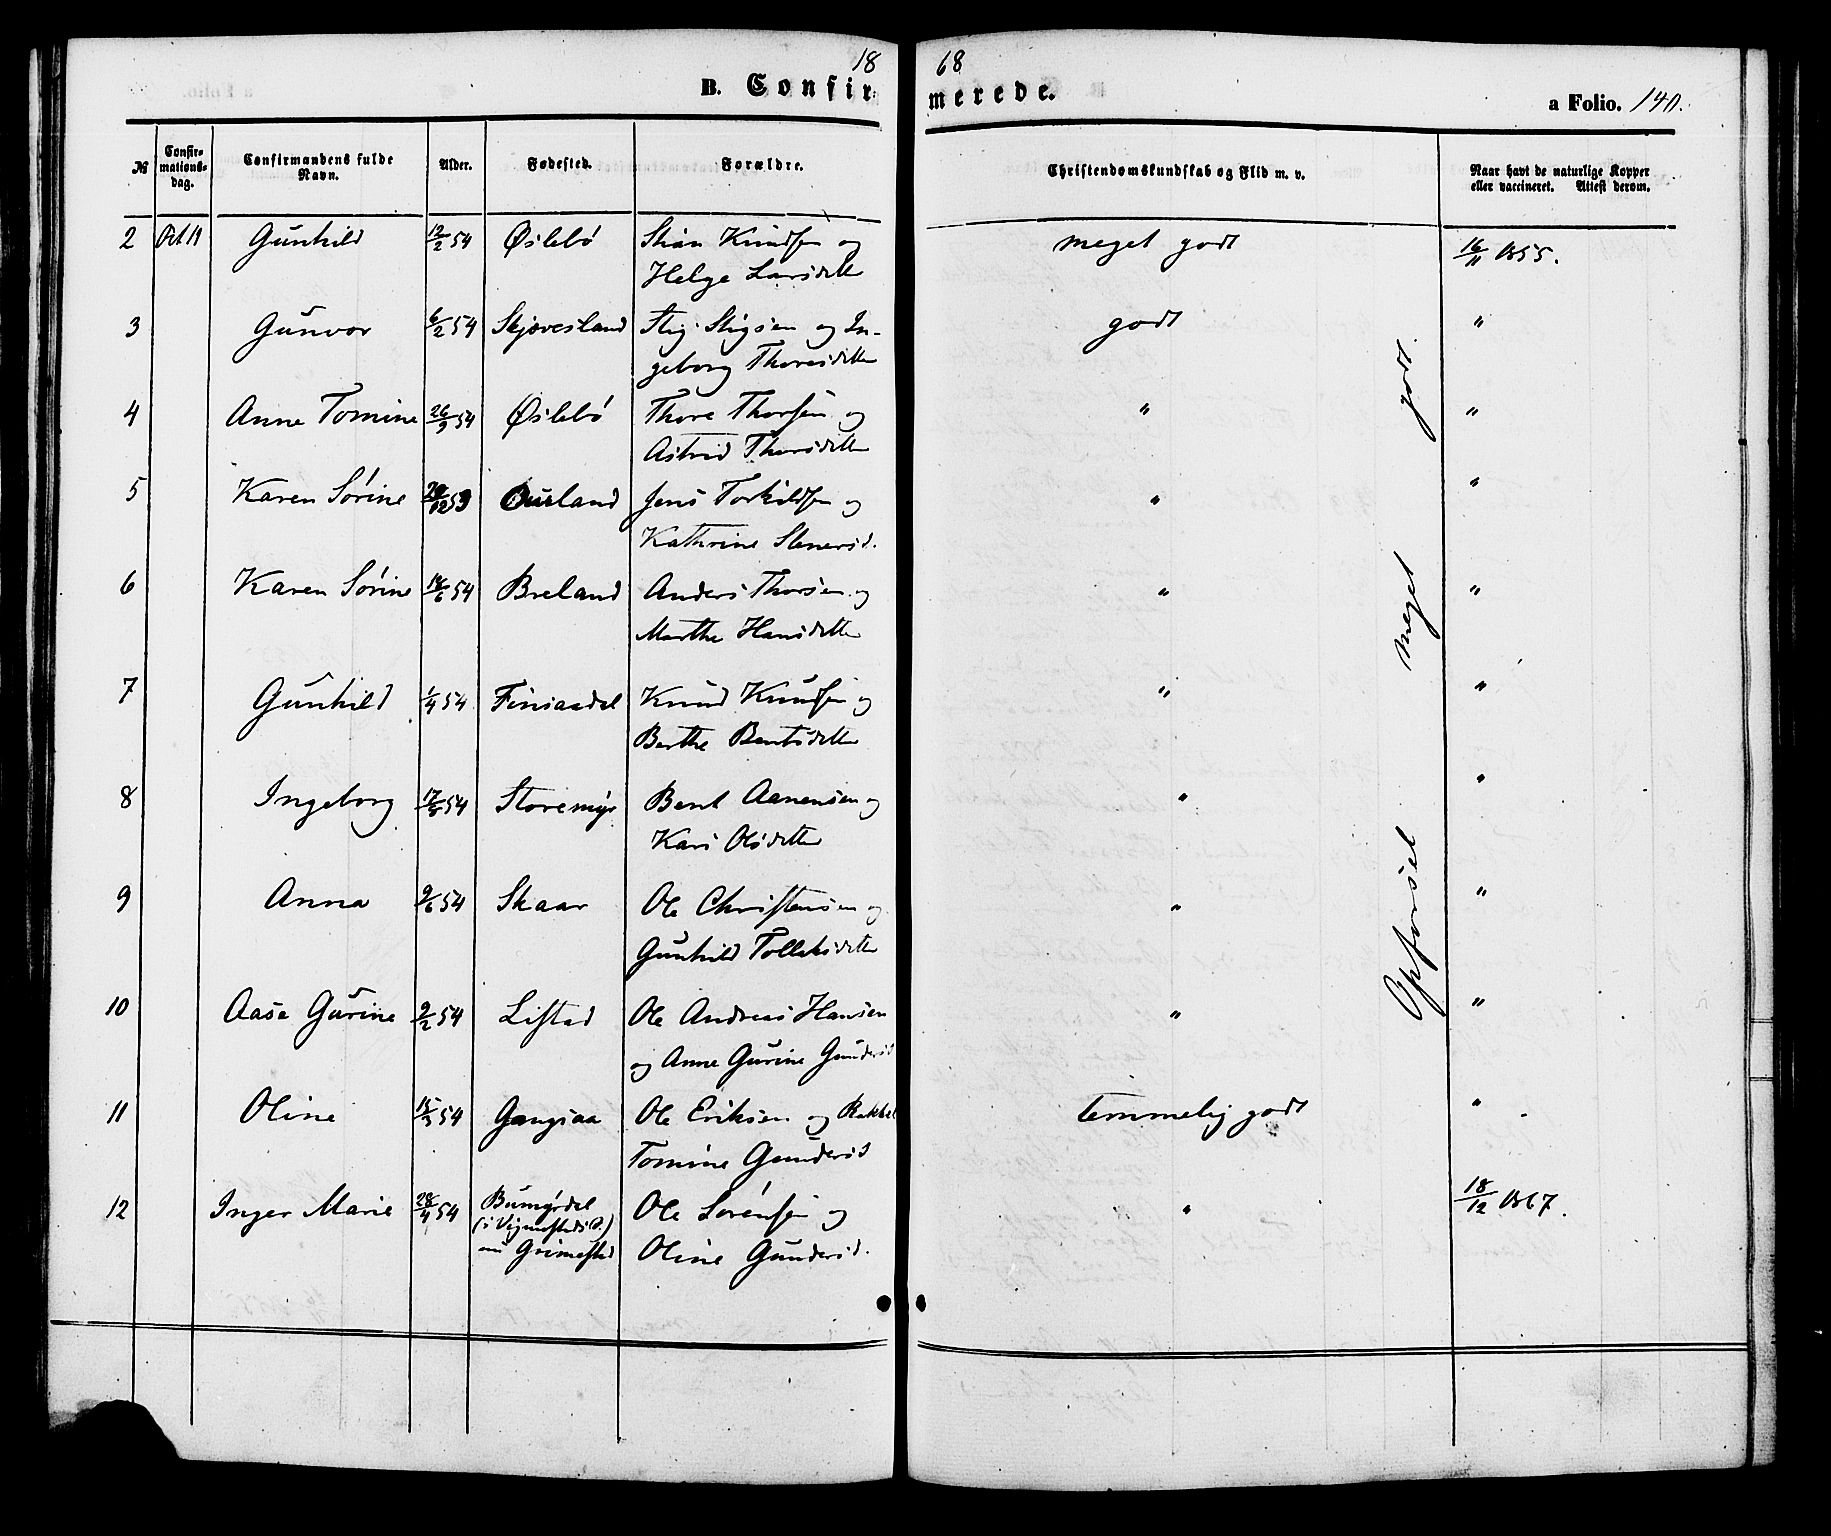 18 68
B. Confirmerede. a Folio. 140.
№ Confirmationsdag. Confirmandens fulde Navn. Alder. Fødested. Forældre. Christendomskundskab og Flid m. v. Naar havt de naturlige Kopper eller vaccineret. Attest derom.
2 Oct 11 Gunhild 12/2 54 Øslebø Stian Knudsen og meget godt 16/11 1855.
Helge Larsdatter
3 Gunvor 6/2 54 Skjøvesland Stig Stigsen og In- godt "
geborg Thoresdatter
4 Anne Tomine 26/9 54 Øslebø Thore Thorsen og " "
Astrid Thorsdatter
5 Karen Sørine 53 Ouesland Jens Torkildsen og " "
Kathrine Stenersd.
6 Karen Sørine 18/6 54 Breland Anders Thorsen og " "
Marthe Hansdatter
7 Gunhild 1/4 54 Finsaadal Knud Knudsen og " "
Berthe Bentsdatter
8 Ingeborg 54 Storemyr Bent Aanensen og " "
Kari Olsdatter
9 Anna 9/6 54 Skaar Ole Christensen og " "
Gunhild Tollaksdatter
10 Aase Gurine 9/2 54 Liestad Ole Andreas Hansen " "
og Anne Gurine Gundersd
11 Oline 15/3 54 Gangsaa Ole Eriksen og Rakkel temmelig godt "
Tomine Gundersd
12 Inger Marie 28/4 54 Ole Sørensen og " 18/12 1867.
nu Grimestad Oline Gundersd.
Opførsel meget godt.